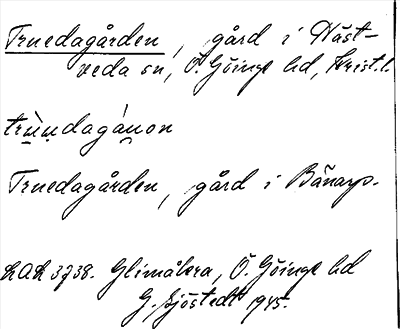 Truedagården, gård i Häst-
veda sn, Ö. Göinge hd, Krist. l.
trùu̯dagá̀u̯on
Truedagården, gård i Bänarp.
LAL 3738. Glimåkra, Ö. Göinge hd
G. Sjöstedt 1945.